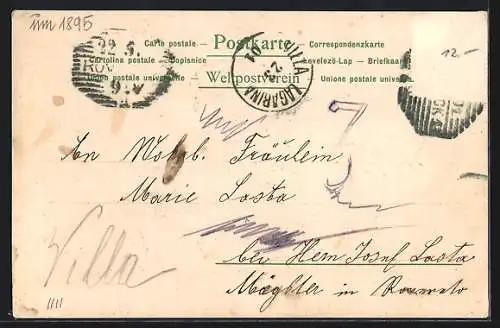 um 1895
12.-
Carte postale — Postkarte — Correspondenzkarte
Cartolina postale — Dopisnice — Levelező-Lap — Briefkaart
Union postale universelle — Weltpostverein — Unione postale univers
22 5.
ROV
9. V
VILLA LAGARINA
23
01
An Wohlb. Fräulein
Marie Lasta
bei Herrn Josef Lasta
in Rovereto
Villa